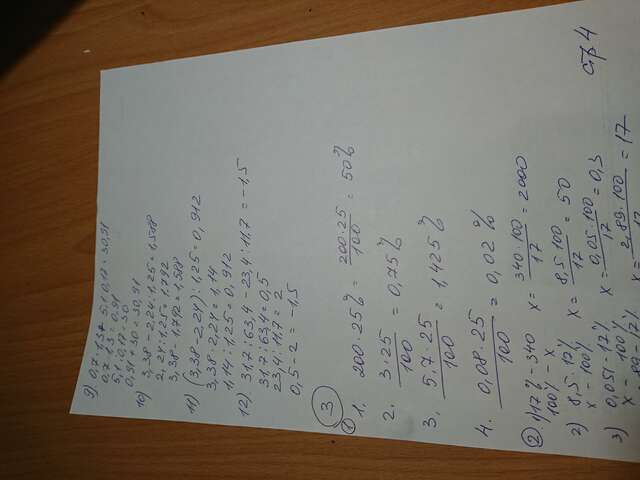 9) 0,7·1,3+5,1:0,17=30,91
0,7·1,3=0,91
5,1:0,17=30
0,91+30=30,91
10) 3,38-2,24:1,25=1,588
2,24:1,25=1,792
3,38-1,792=1,588
11) (3,38-2,24):1,25=0,912
3,38-2,24=1,14
1,14:1,25=0,912
12) 31,7:63,4-23,4:11,7=-1,5
31,7:63,4=0,5
23,4:11,7=2
0,5-2=-1,5
3
① 1. 200·25% = 200·25/100 = 50%
2. 3·25/100 = 0,75%
3. 5,7·25/100 = 1,425%
4. 0,08·25/100 = 0,02%
② 1) 17%-340 x = 340·100/17 = 2000
100%-x
2) 8,5-17% x = 8,5·100/17 = 50
x-100%
3) 0,051-17% x = 0,05·100/17 = 0,3
x-100%
x = 2,89·100/17 = 17
стр 4